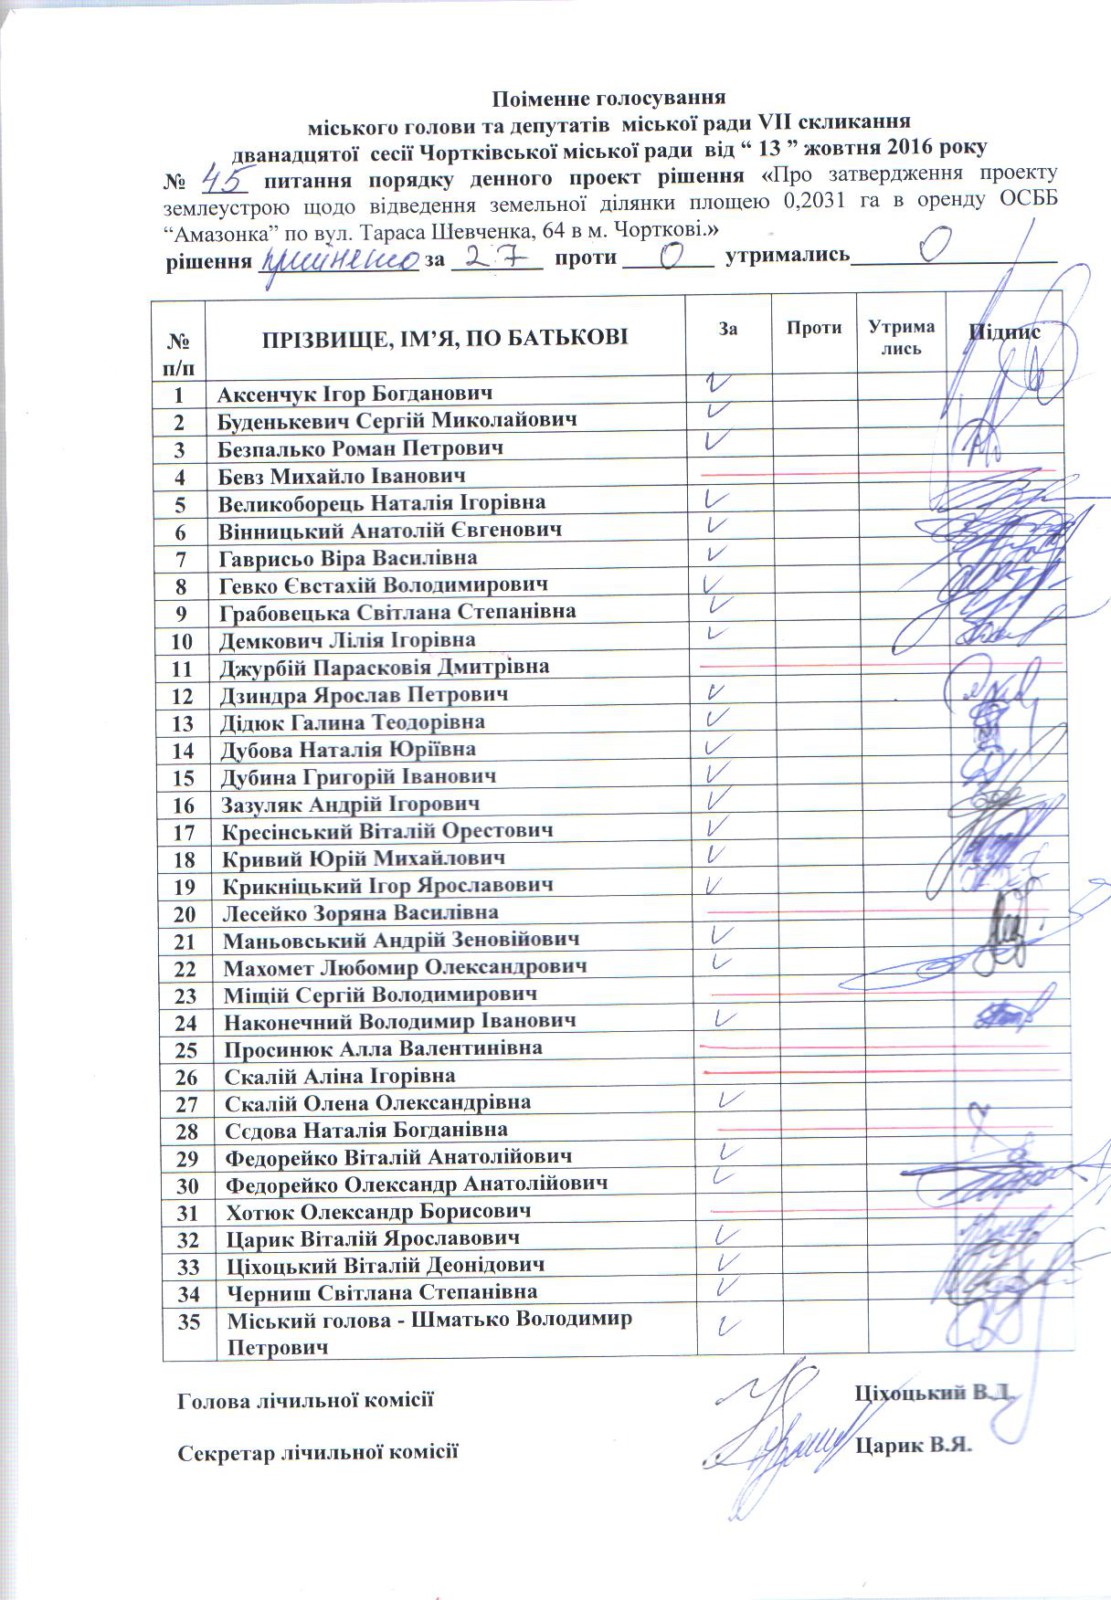 Поіменне голосування
міського голови та депутатів міської ради VII скликання
дванадцятої сесії Чортківської міської ради від “ 13 ” жовтня 2016 року
№ 45 питання порядку денного проект рішення «Про затвердження проекту
землеустрою щодо відведення земельної ділянки площею 0,2031 га в оренду ОСББ
“Амазонка” по вул. Тараса Шевченка, 64 в м. Чорткові.»
рішення прийнято за 27 проти 0 утримались 0
№ п/п ПРІЗВИЩЕ, ІМ’Я, ПО БАТЬКОВІ За Проти Утрима лись Підпис
1 Аксенчук Ігор Богданович
2 Буденькевич Сергій Миколайович
3 Безпалько Роман Петрович
4 Бевз Михайло Іванович
5 Великоборець Наталія Ігорівна
6 Вінницький Анатолій Євгенович
7 Гаврисьо Віра Василівна
8 Гевко Євстахій Володимирович
9 Грабовецька Світлана Степанівна
10 Демкович Лілія Ігорівна
11 Джурбій Парасковія Дмитрівна
12 Дзиндра Ярослав Петрович
13 Дідюк Галина Теодорівна
14 Дубова Наталія Юріївна
15 Дубина Григорій Іванович
16 Зазуляк Андрій Ігорович
17 Кресінський Віталій Орестович
18 Кривий Юрій Михайлович
19 Крикніцький Ігор Ярославович
20 Лесейко Зоряна Василівна
21 Маньовський Андрій Зеновійович
22 Махомет Любомир Олександрович
23 Міщій Сергій Володимирович
24 Наконечний Володимир Іванович
25 Просинюк Алла Валентинівна
26 Скалій Аліна Ігорівна
27 Скалій Олена Олександрівна
28 Сєдова Наталія Богданівна
29 Федорейко Віталій Анатолійович
30 Федорейко Олександр Анатолійович
31 Хотюк Олександр Борисович
32 Царик Віталій Ярославович
33 Ціхоцький Віталій Деонідович
34 Черниш Світлана Степанівна
35 Міський голова - Шматько Володимир
Петрович
Голова лічильної комісії Ціхоцький В.Д.
Секретар лічильної комісії Царик В.Я.